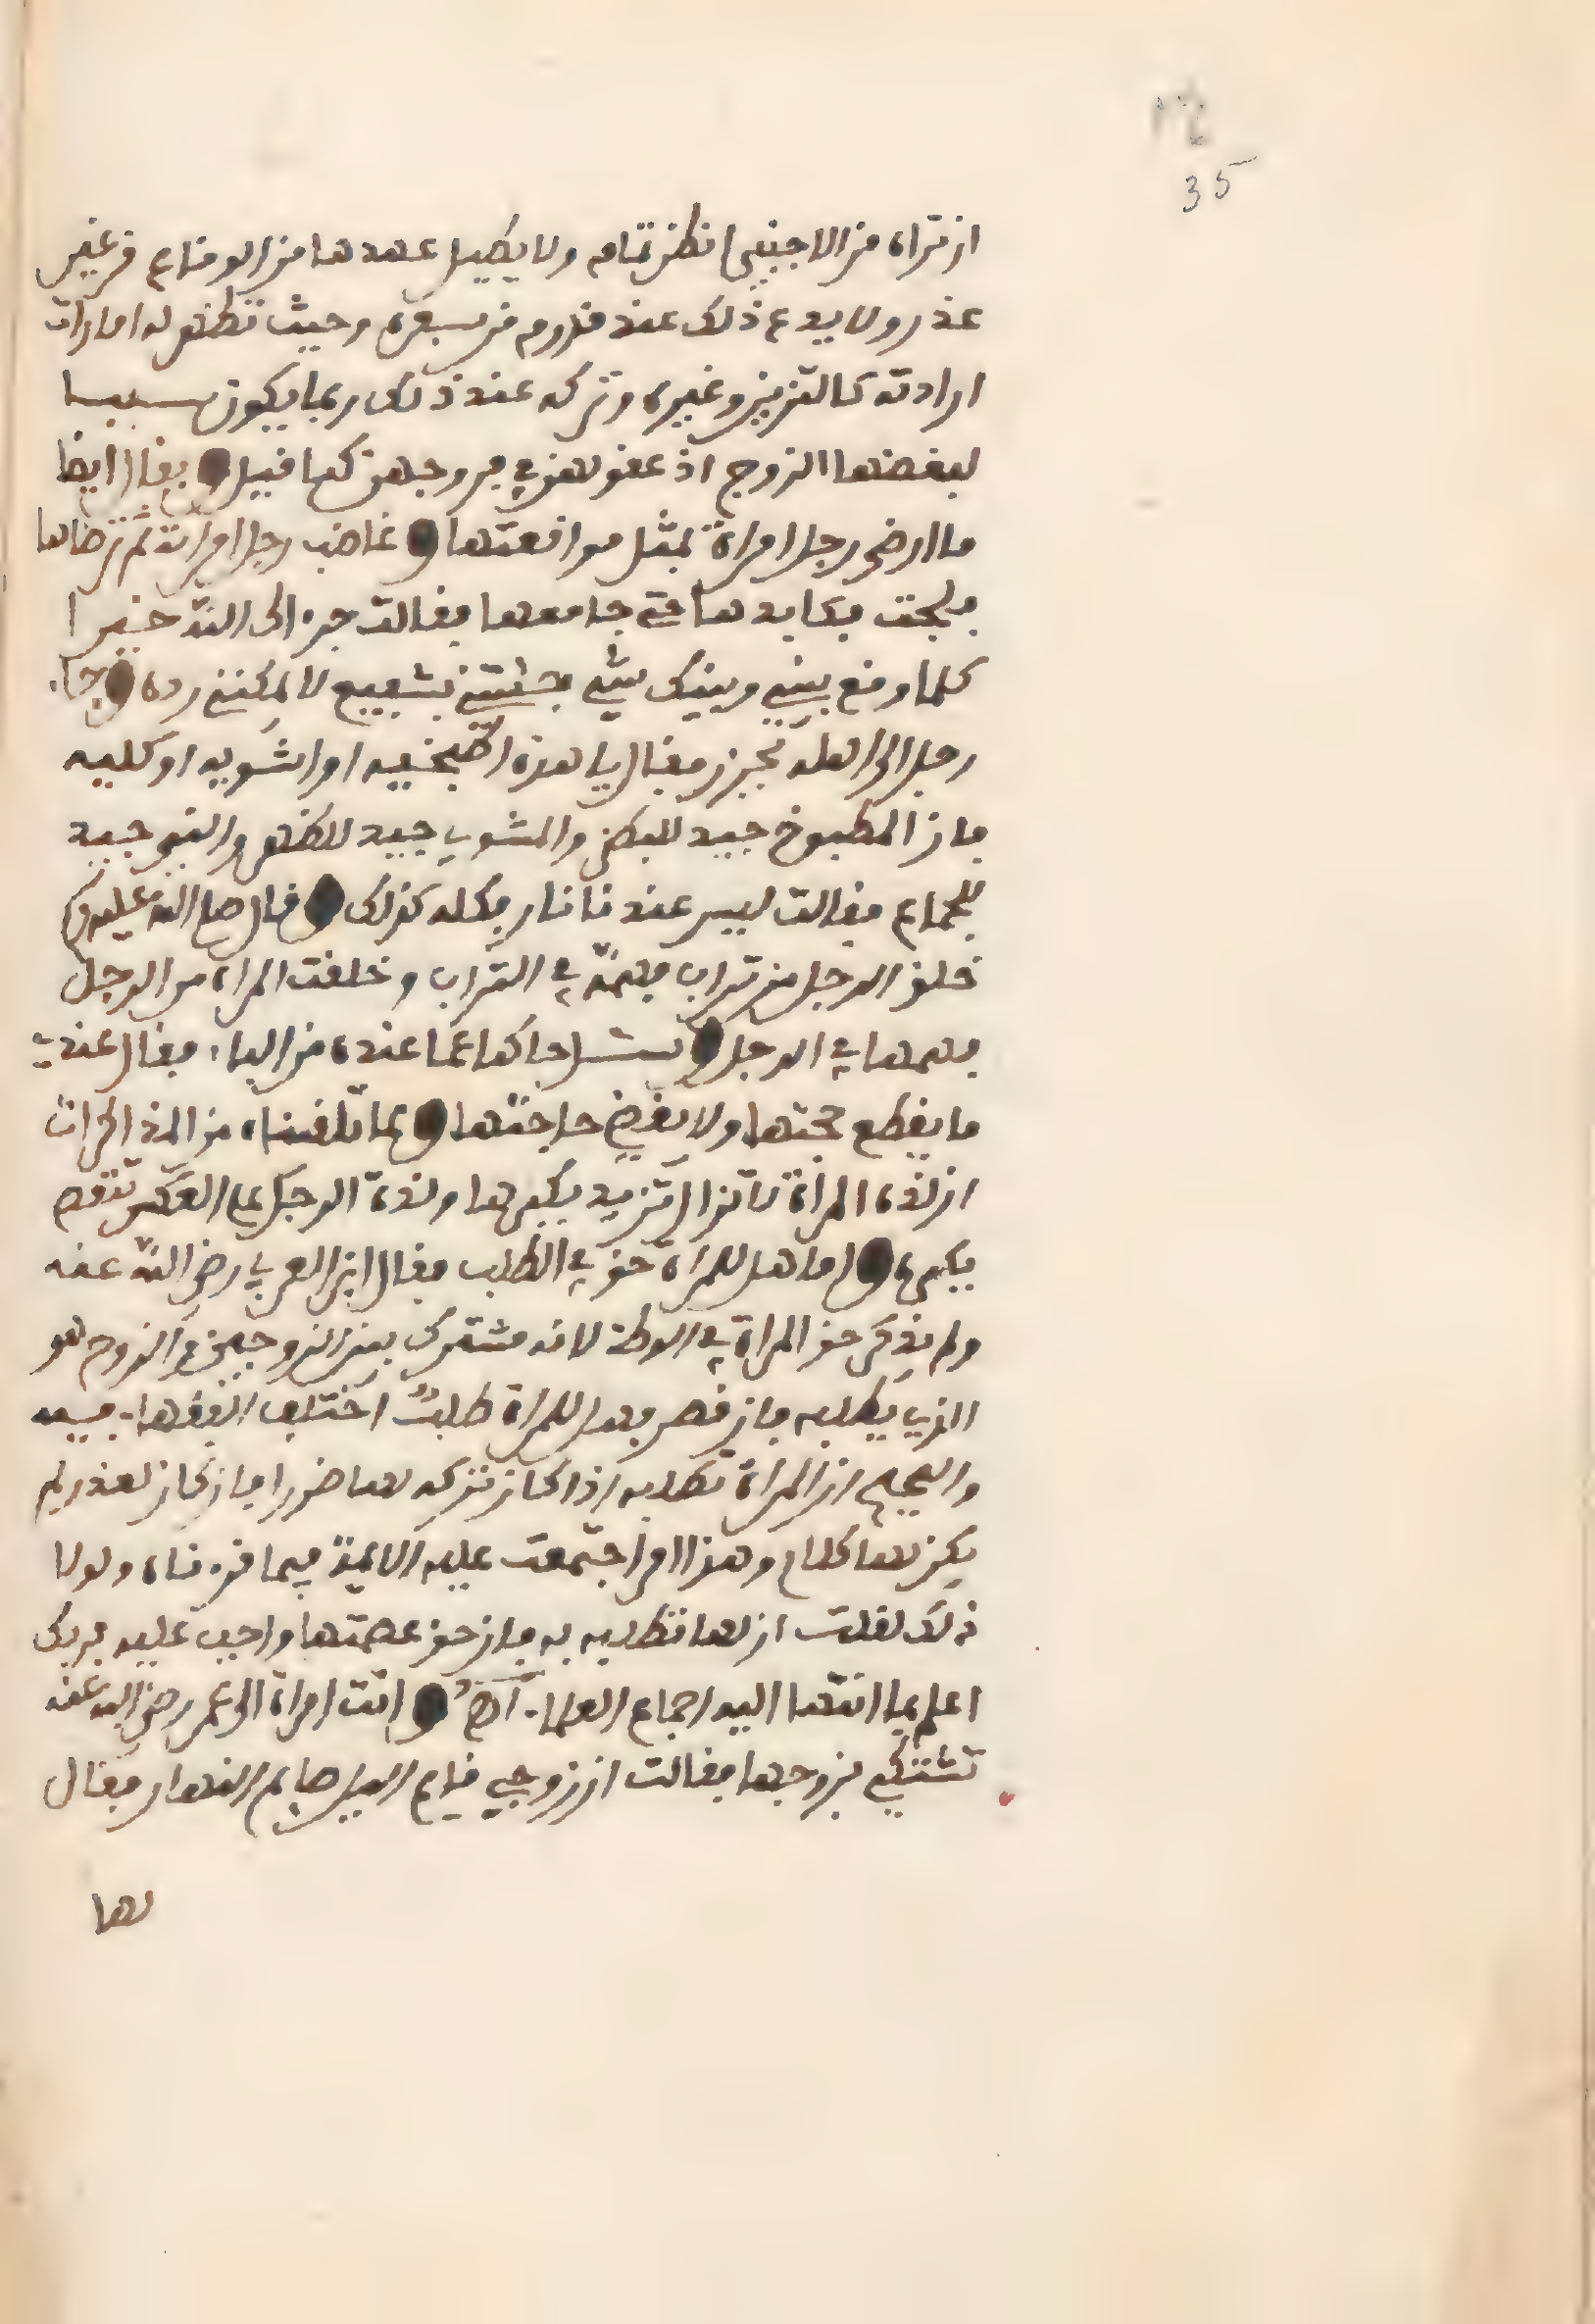 35
ان تراه من الاجنبي انظن تمام ولا يطيل عهدها من الوقاع من غير
عذر ولا يدع ذلك عند قدومه من سفره وحيث تظهر له امارات
ارادته كالتزين وغيره وتركه عند ذلك ربما يكون سببا
لبغضها الزوج اذ عقولهن في فروجهن كما قيل ويقال ايضا
ما ارضى رجل امراة بمثل مواقعتها وغاضب رجل امراته ثم ترضاها
فلجت فكابدها حتى جامعها فقالت جزاك الله خيرا
كلما وقع بيني وبينك شيء جئتني بشفيع لا يمكنني رده وجاء
رجل الى اهله بجزر فقال يا هذه اطبخيه او اشويه او كليه
فان المطبوخ جيد للبطن والمشوي جيد للظهر والنيء جيد
للجماع فقالت ليس عندنا نار فكله كذلك وقال صلى الله عليه وسلم
خلق الرجل من تراب فهمته في التراب وخلقت المراة من الرجل
فهمها في الرجل وسئل جاكها عما عنده من الباء فقال عندي
ما يقطع حجتها ولا يقضي حاجتها ومما تلقيناه من المذاكرات
ان لذة المراة لا تزال تزيد بكبرها ولذة الرجل على العكس تنقص
بكبره واما هل للمراة حق في الطلب فقال ابن العربي رضي الله عنه
ولم يذكر حق المراة في الوطء لانه مشترك بين الزوجين والزوج هو
الذي يطلبه فان قصر فهل للمراة طلبه اختلف الفقهاء فيه
والصحيح ان المراة تطلبه اذا كان تركه لها ضررا فان كان لعذر لم
يكن لها كلام وهذا امر اجتمعت عليه الايمة فيما قررناه ولولا
ذلك لقلت ان لها تطلبه به فان حق عصمتها واجب عليه فربك
اعلم بما انتها اليه اجماع العلماء اه واتت امراة الى عمر رضي الله عنه
تشتكي بزوجها فقالت ان زوجي قايم اليل صايم النهار فقال
لها